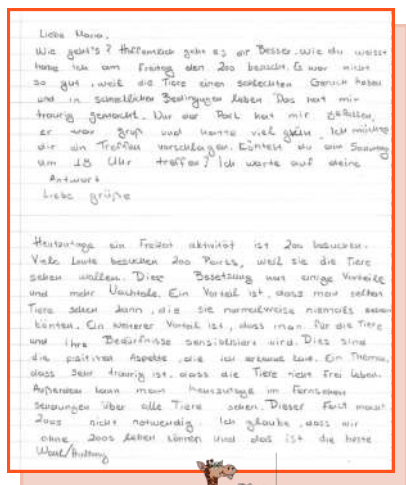 Liebe Maria,
Wie geht's? Hoffentlich geht es dir Besser. Wie du weisst
habe ich am Freitag den Zoo besucht. Es war nicht
so gut, weil die Tiere einen schlechten Geruch haben
und in schrecklichen Bedingungen leben Das hat mir
traurig gemacht. Nur der Park hat mir gefallen,
er war groß und hatte viel grün. Ich möchte
dir ein Treffen vorschlagen. Köntest du am Sonntag
um 18 Uhr treffen? Ich warte auf deine
Antwort
Liebe grüße
Heutzutage ein Freizeit aktivität ist Zoo besuchen.
Viele Leute besuchen Zoo, weil sie die Tiere
sehen wollen. Diese hat einige Vorteile
und mehr Nachteile. Ein Vorteil ist, dass man selten
Tiere sehen kann, die sie normalweise niemals sehen
könten. Ein weiterer Vorteil ist, dass man für die Tiere
und ihre Bedürfnisse sensibilisiert wird. Dies sind
die positiven Aspekte, die ich erkannt habe. Ein Thema,
dass sehr traurig ist, dass die Tiere nicht Frei leben.
Außerdem kann man heutzutage im Fernsehen
sendungen über alle Tiere sehen. Dieser Fakt macht
Zoos nicht notwendig. Ich glaube, dass wir
ohne Zoos leben können und das ist die beste
Wahl/Haltung